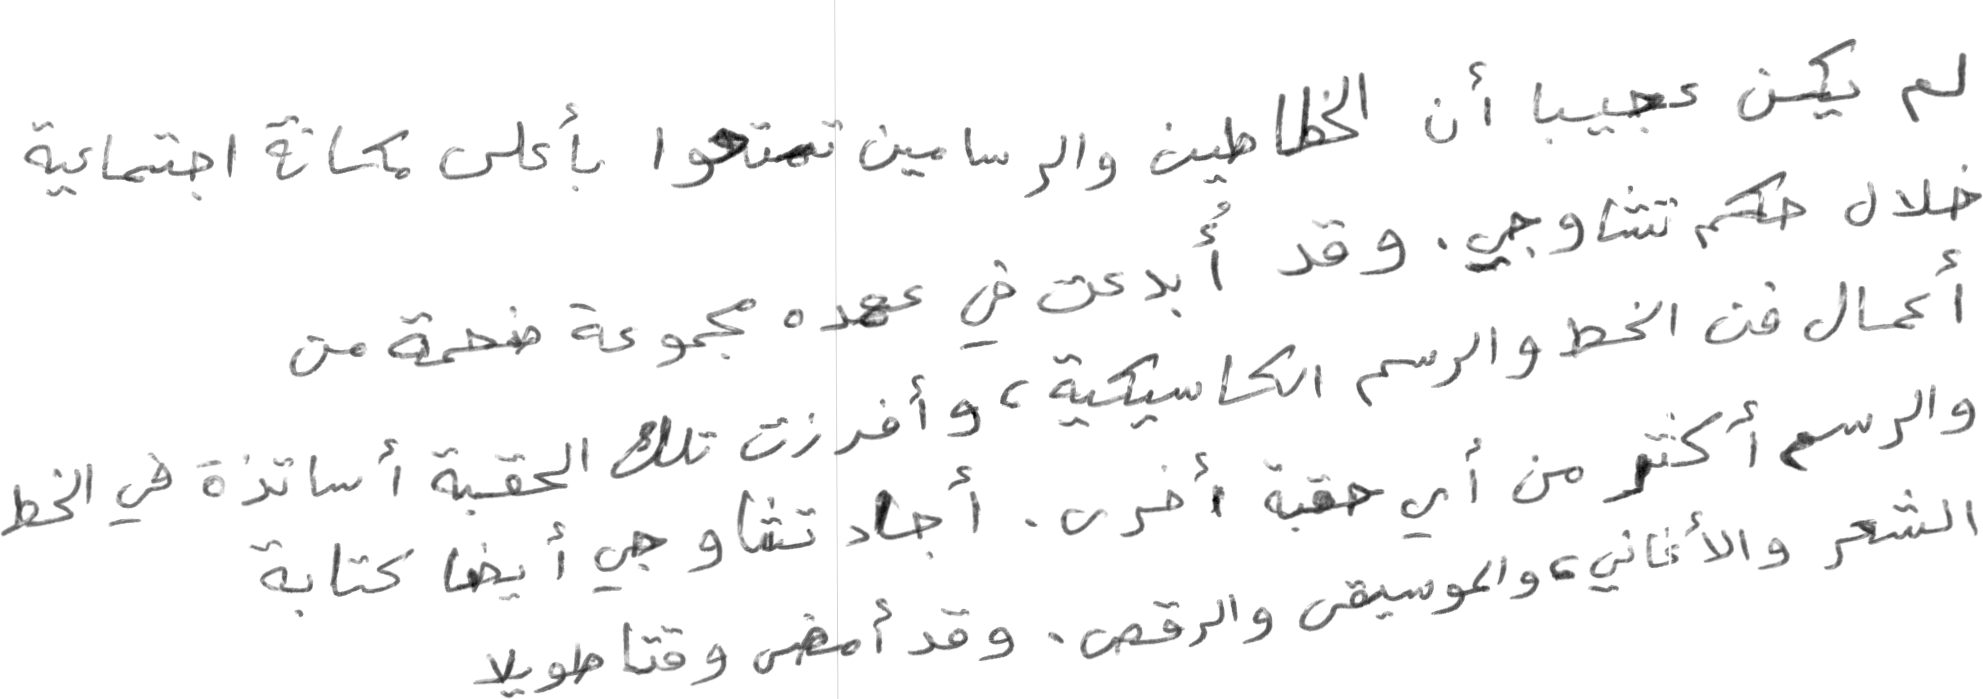 لم يكن عجيبا أن الخطاطين والرسامين تمتعوا بأعلى مكانة اجتماعية
خلال حكم تشاوجي. وقد أُبدعت في عهده مجموعة ضخمة من
أعمال فن الخط والرسم الكاسيكية، وأفرزت تلك الحقبة أساتذة في الخط
والرسم أكثر من أي حقبة أخرى. أجاد تشاوجي أيضا كتابة
الشعر والأغاني، والموسيقى والرقص. وقد أمضى وقتا طويلا